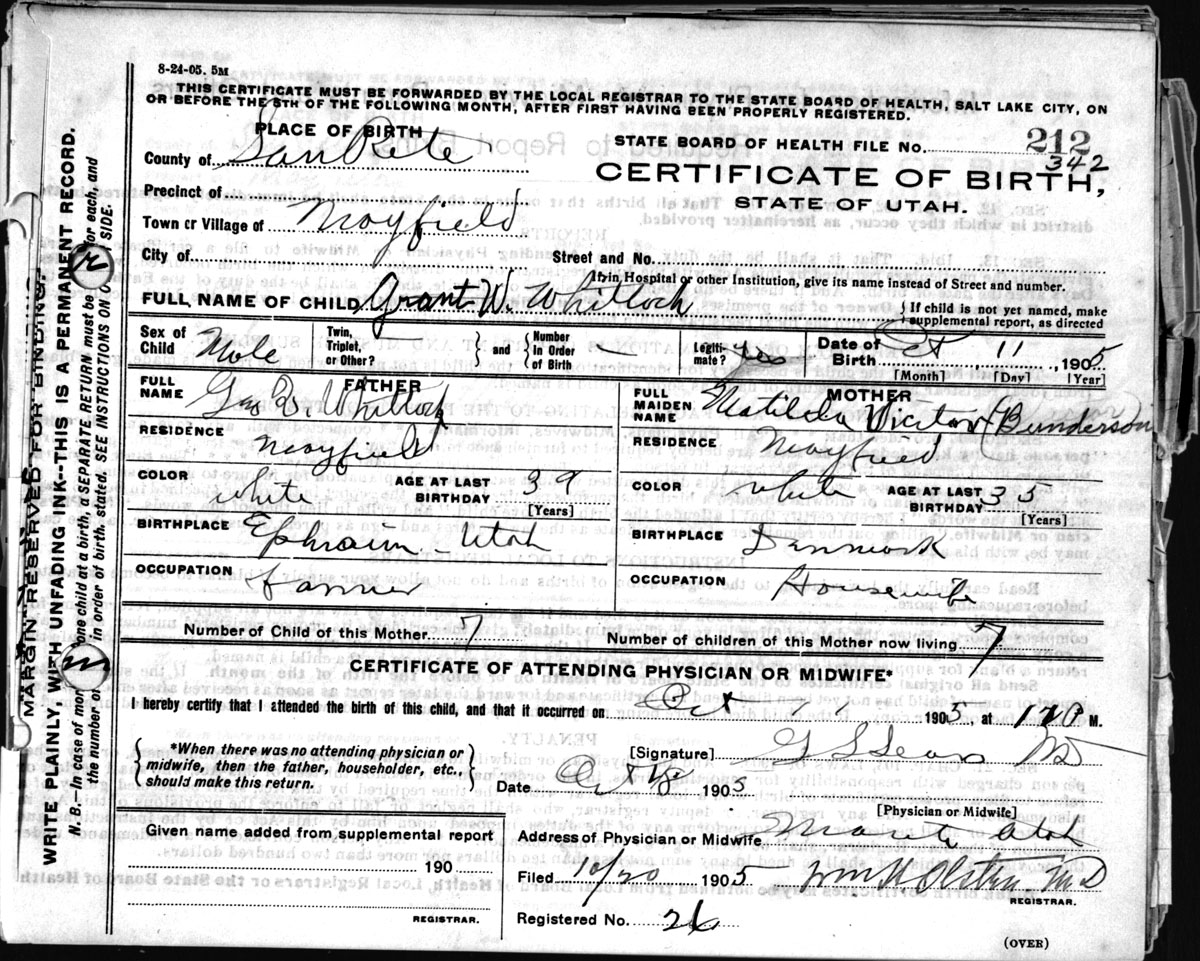 8-24-05. 5M
THIS CERTIFICATE MUST BE FORWARDED BY THE LOCAL REGISTRAR TO THE STATE BOARD OF HEALTH, SALT LAKE CITY, ON
OR BEFORE THE 5TH OF THE FOLLOWING MONTH, AFTER FIRST HAVING BEEN PROPERLY REGISTERED.
PLACE OF BIRTH
STATE BOARD OF HEALTH FILE No. 212
342
County of SanPete
CERTIFICATE OF BIRTH,
STATE OF UTAH.
Precinct of
Town or Village of Mayfield
City of Street and No.
If in Hospital or other Institution, give its name instead of Street and number.
FULL NAME OF CHILD Grant W. Whitlock { If child is not yet named, make supplemental report, as directed
Sex of Child Male Twin, Triplet, or Other? { and } Number in Order of Birth Legitimate? yes Date of Birth Oct 11, 1905
[Month] [Day] [Year]
FATHER MOTHER
FULL NAME Geo B. Whitlock FULL MAIDEN NAME Matilda Bunderson
RESIDENCE Mayfield RESIDENCE Mayfield
COLOR white AGE AT LAST BIRTHDAY 39 [Years] COLOR white AGE AT LAST BIRTHDAY 35 [Years]
BIRTHPLACE Ephraim - Utah BIRTHPLACE Denmark
OCCUPATION farmer OCCUPATION Housewife
Number of Child of this Mother 7 Number of children of this Mother now living 7
CERTIFICATE OF ATTENDING PHYSICIAN OR MIDWIFE*
I hereby certify that I attended the birth of this child, and that it occurred on Oct 1905 at M.
{ *When there was no attending physician or midwife, then the father, householder, etc., should make this return. }
[Signature] MD
Date Oct 1905
[Physician or Midwife]
Given name added from supplemental report
190
REGISTRAR.
Address of Physician or Midwife Manti Utah
Filed 10/20 1905 Wm H. Olsten M.D
REGISTRAR.
Registered No. 26
(OVER)
MARGIN RESERVED FOR BINDING.
WRITE PLAINLY, WITH UNFADING INK--THIS IS A PERMANENT RECORD.
N. B.—In case of more one child at a birth, a SEPARATE RETURN must be for each, and
the number of in order of birth stated. SEE INSTRUCTIONS ON SIDE.